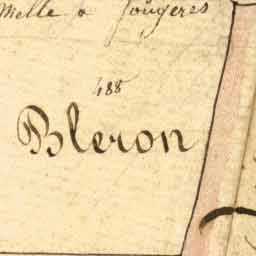 Melle à Fougères
488
Bleron